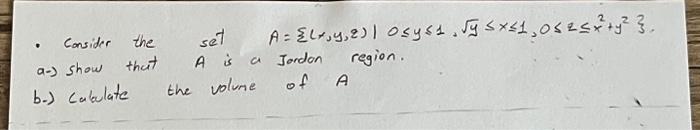 • Consider the set A = {(x,y,z) | 0≤y≤1, √y ≤x≤1, 0≤z≤x²+y² }.
a-) show that A is a Jordan region.
b-) Calculate the volume of A